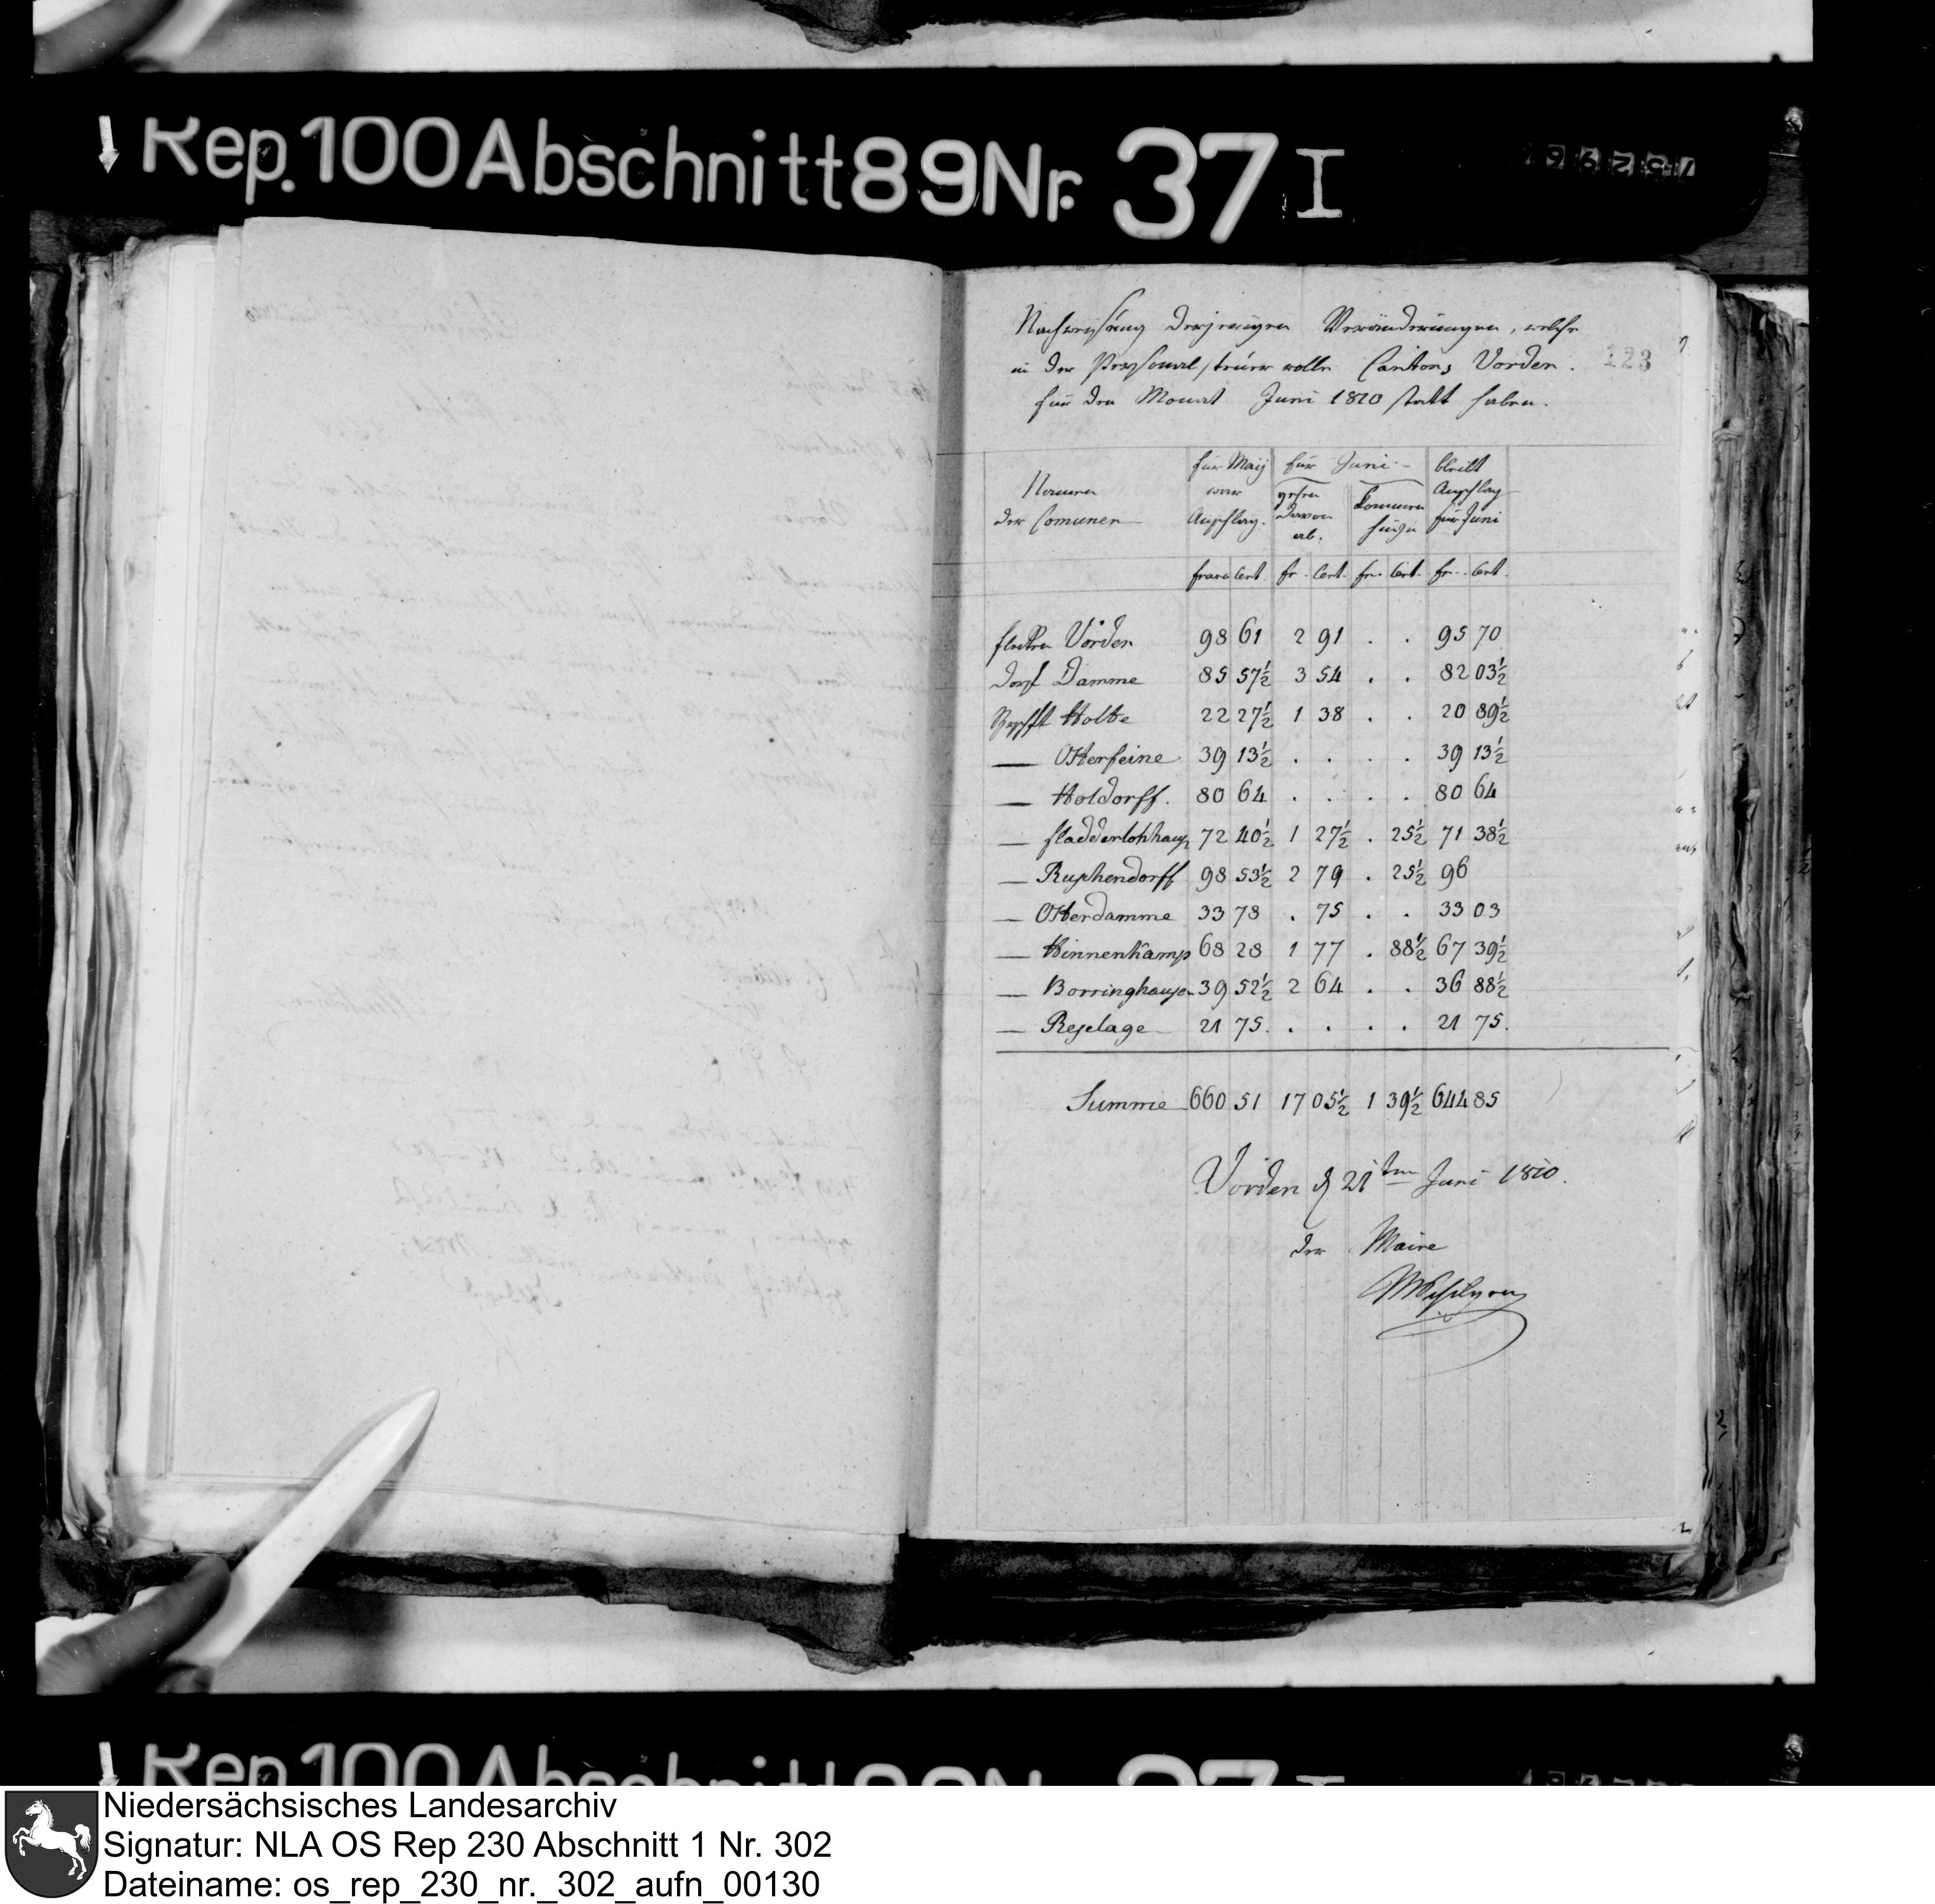 Rep. 100 Abschnitt 89 Nr. 37 I
Nachweisung derjenigen Veränderungen, welche
in der Personalsteuer Rolle Cantons Vörden.
für den Monat Juni 1810 statt haben.
123
Namen der Comunen | für Maij war Anschlag. | für Juni gehen davon ab. | Kommen hinzu | bleibt Anschlag für Juni
franc Cent. fr. Cent. fr. Cent. fr. Cent.
flecken Vörden 98 61 2 91 . . 95 70
Dorf Damme 85 57½ 3 54 . . 82 03½
Holte 22 27½ 1 38 . . 20 89½
— Osterfeine 39 13½ . . . . 39 13½
— Holdorff. 80 64 . . . . 80 64
— fladderlohhaus 72 40½ 1 27½ . 25½ 71 38½
— Ruschendorff 98 53½ 2 79 . 25½ 96
— Osterdamme 33 78 . 75 . . 33 03
— Hinnenkamp 68 28 1 77 . 88½ 67 39½
— Borringhausen 39 52½ 2 64 . . 36 88½
— Reselage 21 75. . . . . 21 75.
Summe 660 51 17 05½ 1 39½ 644 85
Vörden d 21ten Juni 1810.
der Maire
Rep. 100 Abschnitt 89 Nr. 37 I
Niedersächsisches Landesarchiv
Signatur: NLA OS Rep 230 Abschnitt 1 Nr. 302
Dateiname: os_rep_230_nr._302_aufn_00130